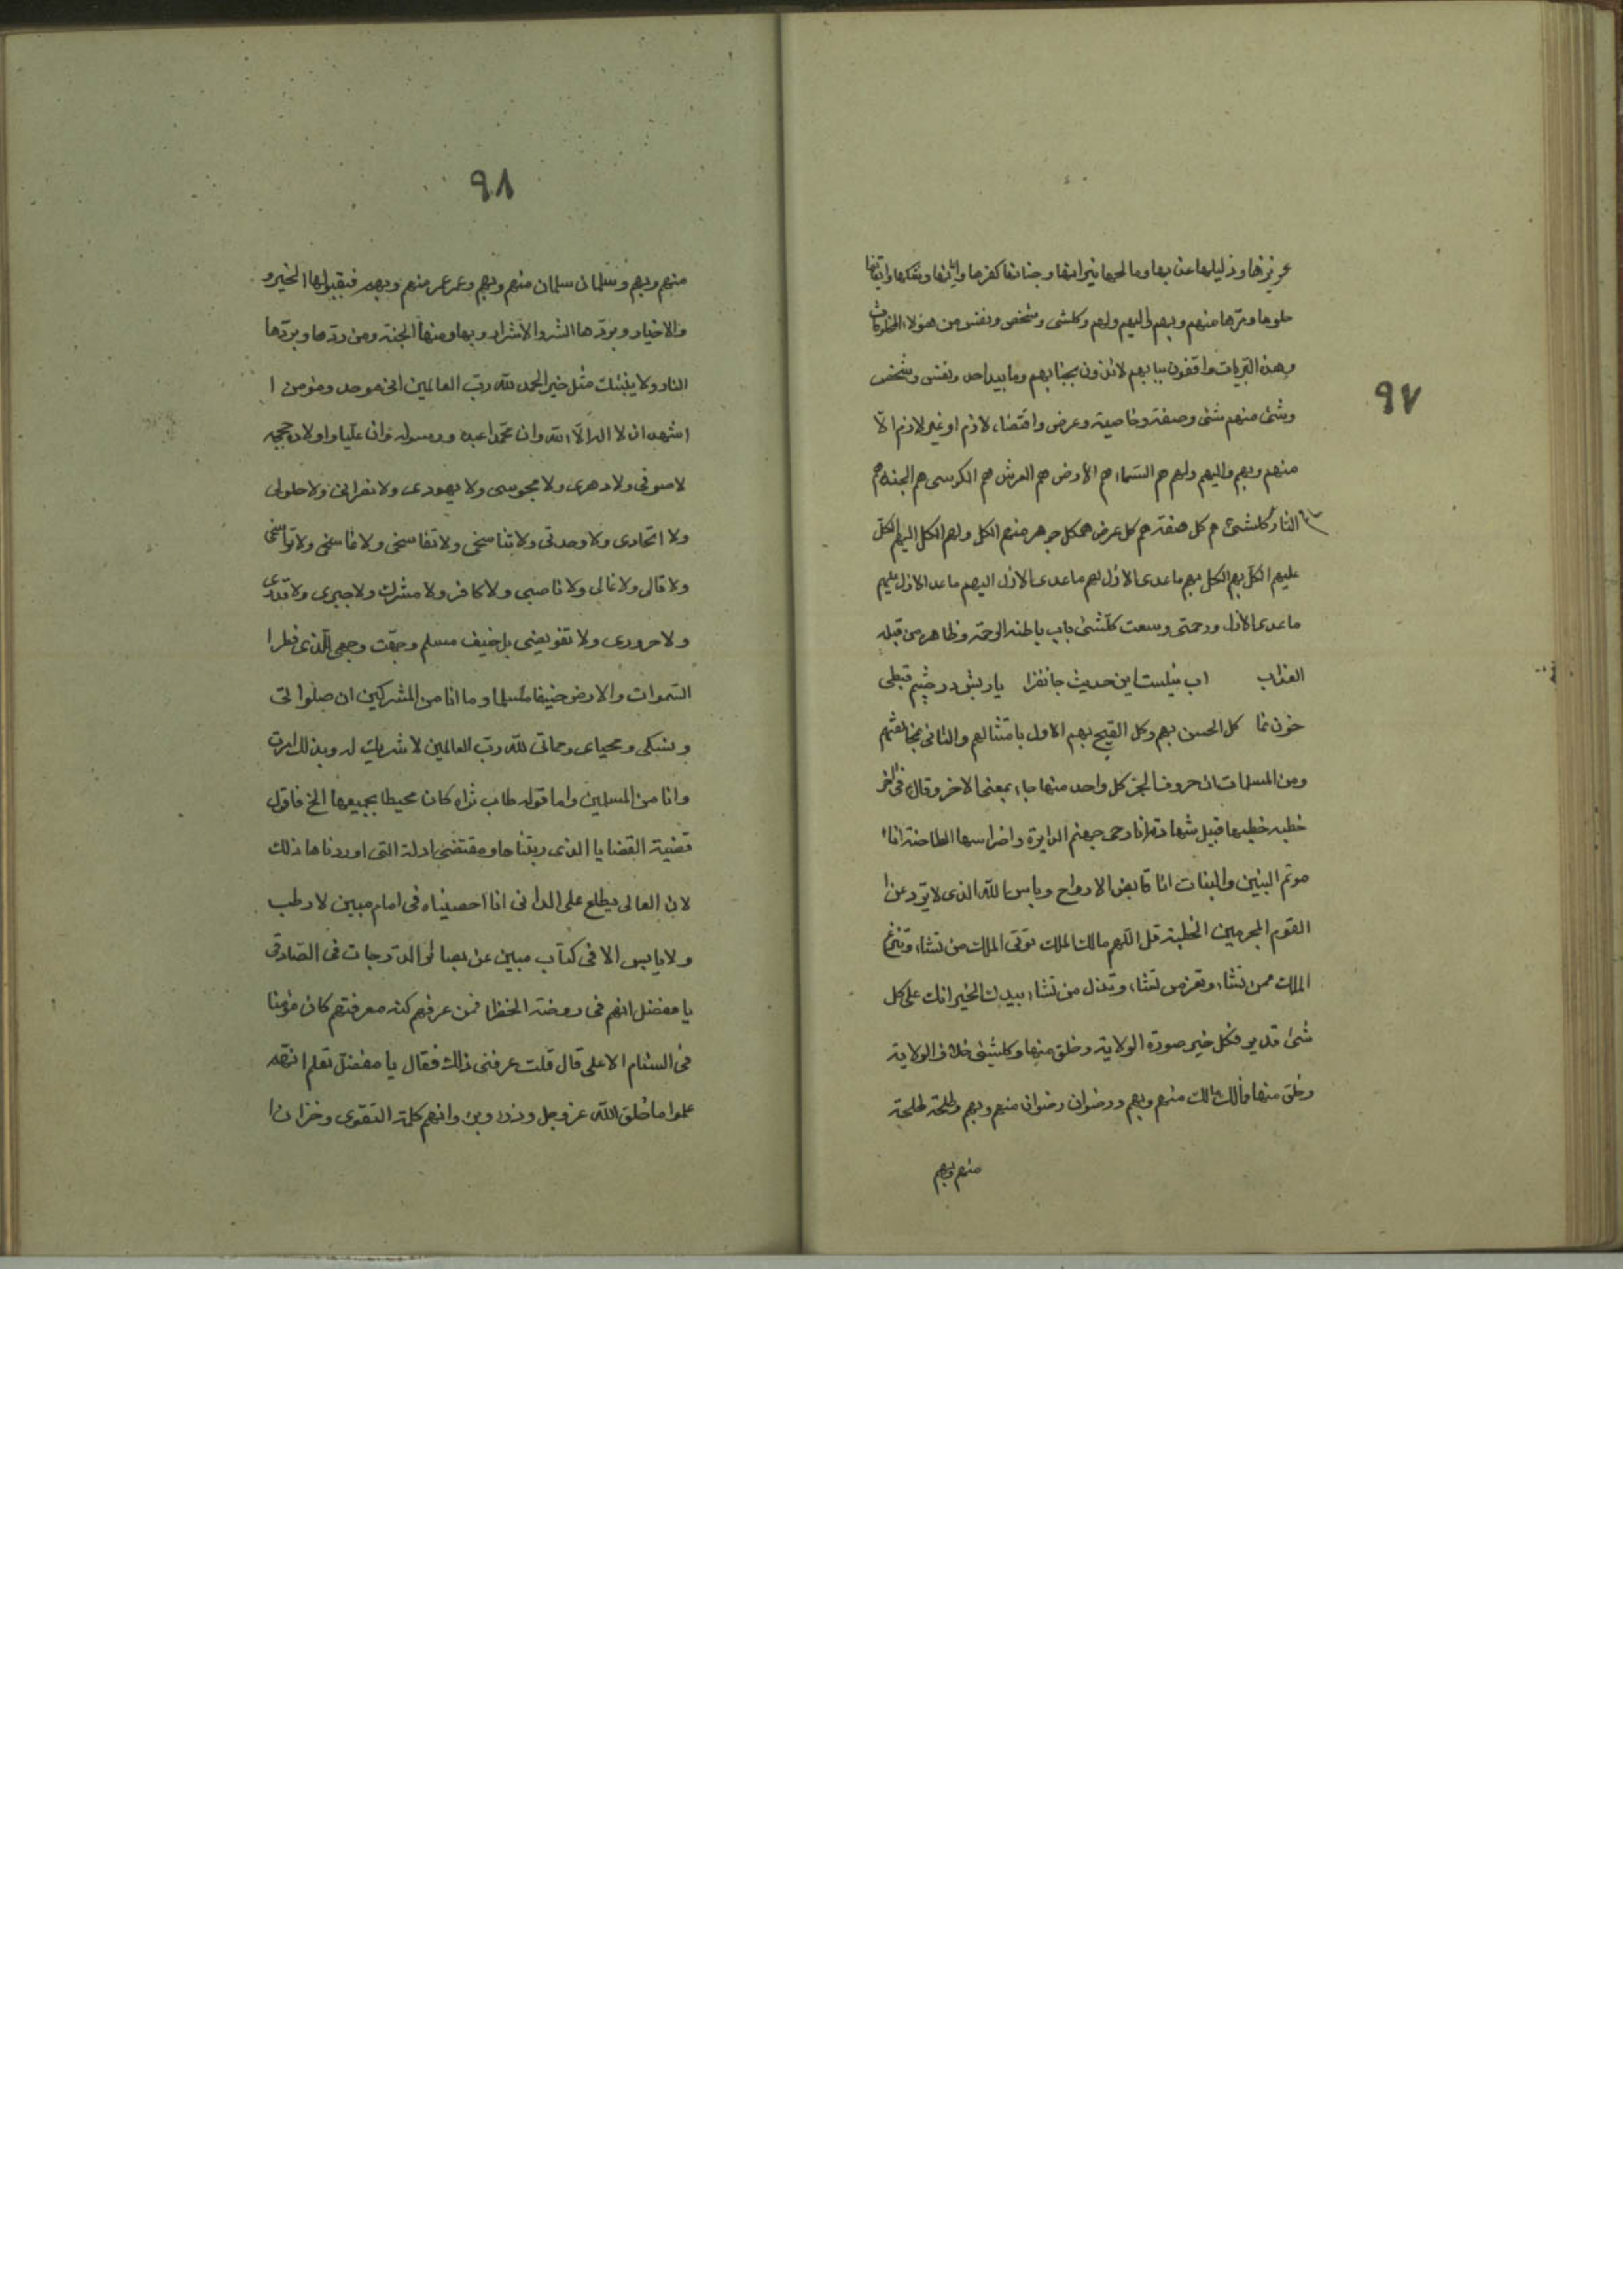 ٩٧
عزيزها وذليلها عذبها ومالحها نيرانها وجنانها كفرها وايمانها وشكها وايقانها
حلوها ومرّها منهم وبهم واليهم ولهم وكلشئ وشخص ونفس من هؤلاء المخلوقات
وهذه البريات واقفون ببابهم لائذون بجنابهم وما بيد احد ونفس وشخص
وشئ منهم شئ وصفة وخاصية وعرض واقتضاء لازم او غير لازم الّا
منهم وبهم واليهم ولهم هم السماء هم الأرض هم العرش هم الكرسى هم الجنة هم
النار كلشئ هم كل صفة هم كل عرض هم كل جوهر منهم الكل ولهم الكل اليهم الكل
عليهم الكل بهم الكل بهم ما عدى الازل لهم ما عدى الازل اليهم ما عدا الازل عليهم
ما عدى الازل ورحمتى وسعت كلّشئ باب باطنه الرحمة وظاهره من قبله
العذاب اب نيلست اين حديث جانفزا يا ربش در چشم قبطى
خون نما كل الحسن بهم وكل القبيح بهم الاول بامتثالهم والثانى بمخالفتهم
ومن المسلمات ان حروف الجر كل واحد منها جاء بمعنى الاخر وقال فى اخر
خطبه خطبها قبيل شهادته انا رحى جهنم الدايرة واضراسها الطاحنة انا
موتم البنين والبنات انا قابض الارواح وباس الله الذى لا يرد عن ا
القوم المجرمين الخطبة قل اللهم مالك الملك توتى الملك من تشاء وتنزع
الملك ممن تشاء وتعز من تشاء وتذل من تشاء بيدك الخير انك على كل
شئ قدير فكل خير صورة الولاية وخلق منها وكلشئ خلاف الولاية
وخلق منها فالك مالك منهم وبهم ورضوان رضوان منهم وبهم وطلحة طلحة
منهم وبهم
٩٨
منهم وبهم وسلمان سلمان منهم وبهم وعمر عمر منهم وبهم فبقبولها الخير و
والاخيار وبردّها الشر والاشرار وبها ومنها الجنة ومن ردّها وبردّها
النار ولا ينبئك مثل خبير الحمد لله ربّ العالمين انى موحد ومؤمن ا
اشهد ان لا اله الّا الله وان محمّدا عبده ورسوله وان عليّا واولاده حججه
لا صوفى ولا دهرى ولا مجوسى ولا يهودى ولا نصرانى ولا حلولى
ولا اتحادى ولا وحدتى ولا تناسخى ولا تفاسخى ولا فاسخى ولا تواسخى
ولا قالى ولا غالى ولا ناصبى ولا كافر ولا مشرك ولا جبرى ولا قدرى
ولا حرورى ولا تفويضى بل حنيف مسلم وجّهت وجهى للّذى فطر ا
السّموات والارض حنيفا مسلما وما انا من المشركين ان صلواتى
ونسكى ومحياى ومماتى للّه ربّ العالمين لا شريك له وبذلك امرت
وانا من المسلمين واما قوله طاب ثراه كان محيطا بجميعها الخ فاقول
قضية القضايا الذى رتبناها ومقتضى ادلة التى اوردناها ذلك
لان العالى يطلع على الدانى انا احصيناه فى امام مبين لا رطب
ولا يابس الا فى كتاب مبين عن بصائر الدّرجات فى الصّادقى
يا مفضل انهم فى روضة الخضرا فمن عرفهم كنه معرفتهم كان مؤمنا
فى السنام الاعلى قال قلت عرفنى ذلك فقال يا مفضل تعلم انهم
علموا ما خلق الله عز وجل وذرا وبرء وانهم كلمة التقوى وخزان ا